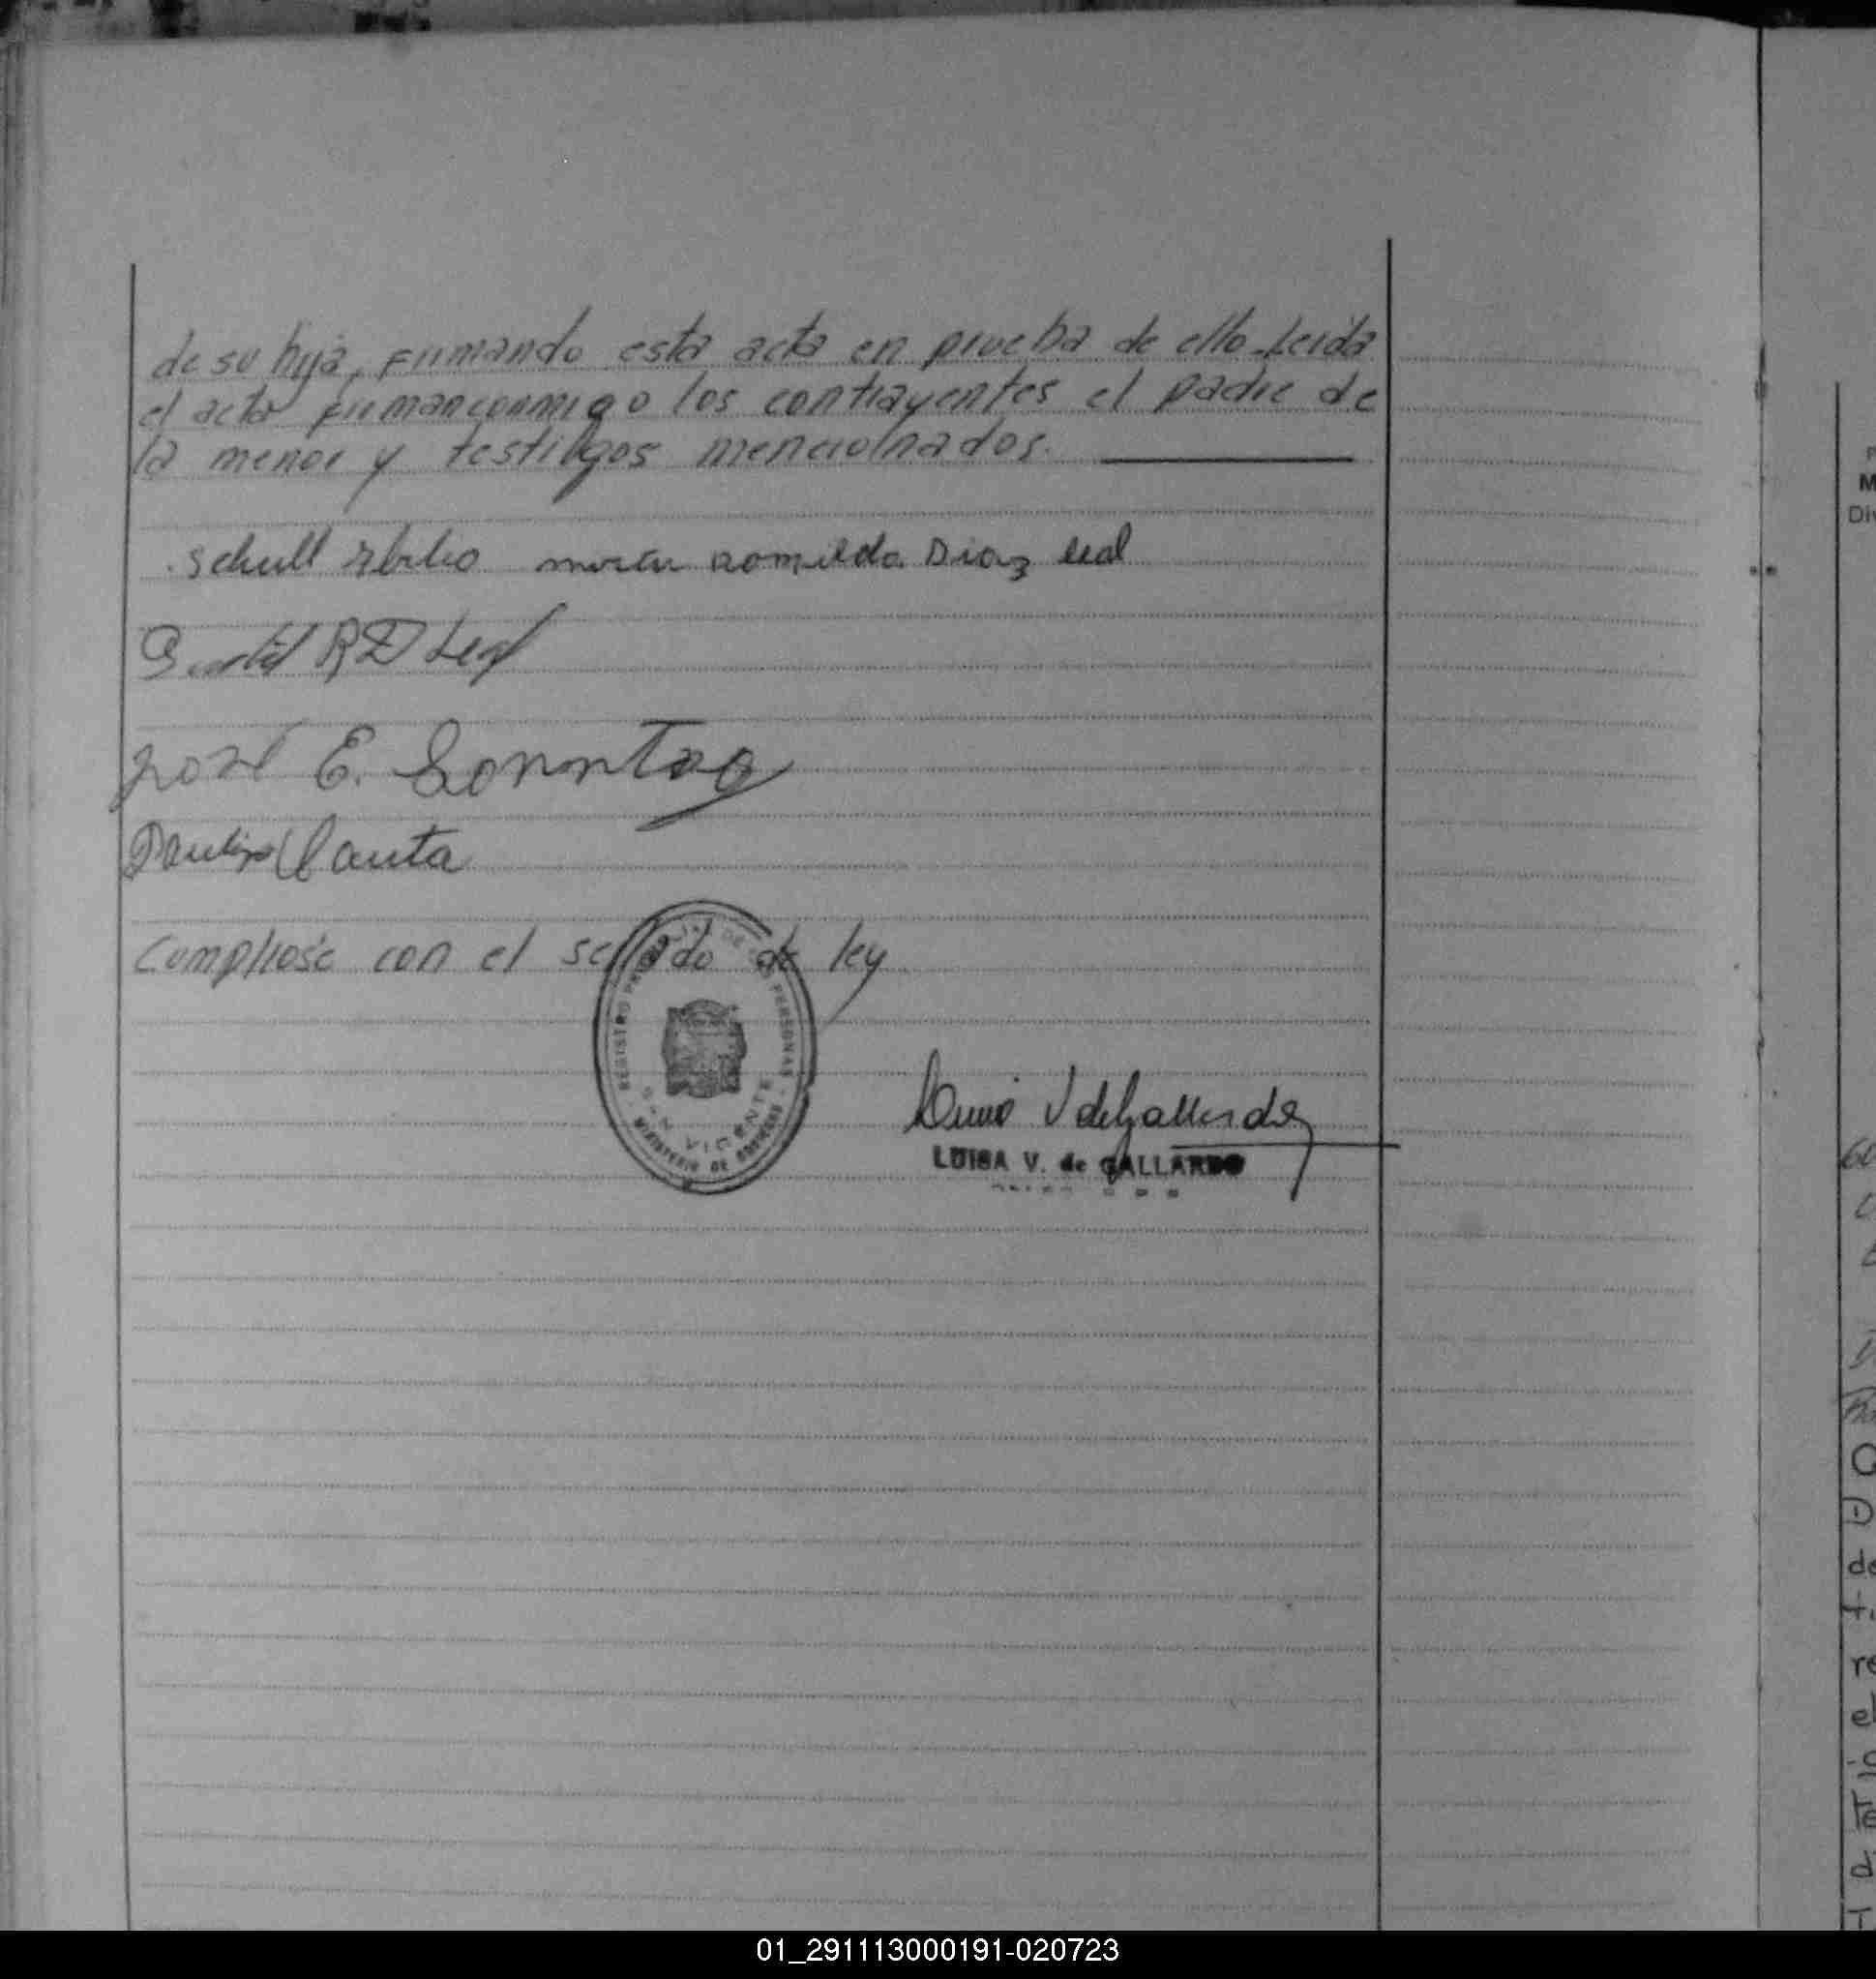 de su hija, firmando esta acta en prueba de ello. Leida
el acta firman conmigo los contrayentes el padre de
la menor y testigos mencionados.
Schull
Romilda Diaz Leal
R D Leal
José E. Sonntag
Cumpliose con el sellado de ley
REGISTRO PROVINCIAL DE LAS PERSONAS
SAN VICENTE
MINISTERIO DE GOBIERNO
LUISA V. de GALLARDO
01_291113000191-020723